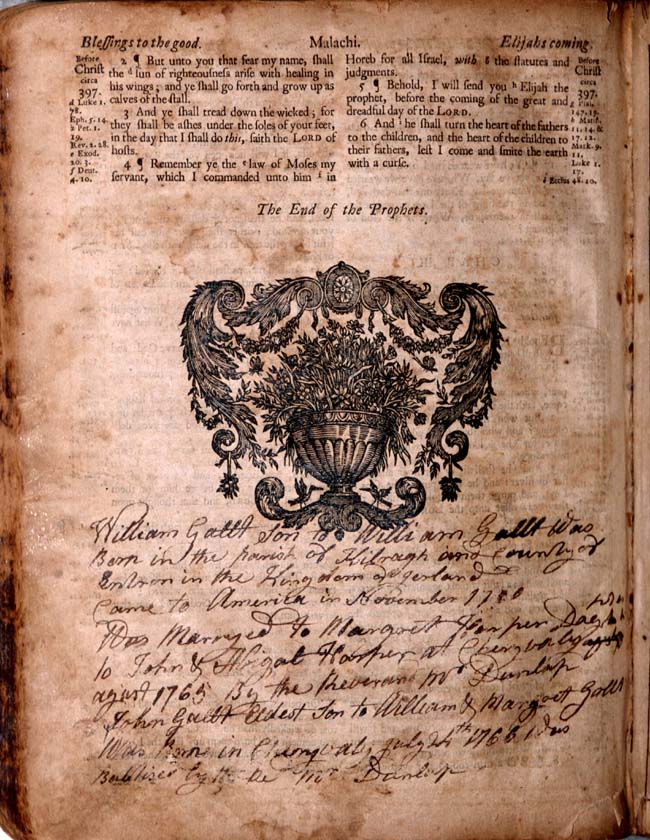 Blessings to the good.
Malachi.
Elijahs coming.
Before
Christ
circa
397.
d Luke 1.
78.
Eph. 5. 14.
2 Pet. 1.
19.
Rev. 2. 28.
e Exod.
20. 3.
f Deut.
4. 10.
2 ¶ But unto you that fear my name, shall
the d sun of righteousness arise with healing in
his wings; and ye shall go forth and grow up as
calves of the stall.
3 And ye shall tread down the wicked; for
they shall be ashes under the soles of your feet,
in the day that I shall do this, saith the LORD of
hosts.
4 ¶ Remember ye the e law of Moses my
servant, which I commanded unto him f in
Horeb for all Israel, with g the statutes and
judgments.
5 ¶ Behold, I will send you h Elijah the
prophet, before the coming of the great and
dreadful day of the LORD.
6 And i he shall turn the heart of the fathers
to the children, and the heart of the children to
their fathers, lest I come and smite the earth
with a curse.
Before
Christ
circa
397.
g Psal.
147. 19.
h Matt.
11. 14. &
17. 12.
Mark. 9.
11.
Luke 1.
17.
i Ecclus 48. 10.
The End of the Prophets.
William Gallt Son to William Gallt Was
Born in the parish of Kilragh and County of
Entron in the Kingdom of Ierland
Came to America in November 17
Was Marryed to Margret Harper
to John & Abigal Harper at Cherryvaly
agust 1765 By the Reverand Mr Dunlap
John Gallt Eldest Son to William & Margret Gallt
Was Borne in Cherryvaly July 24th 1766 Was
Baptised by the Mr Dunlap